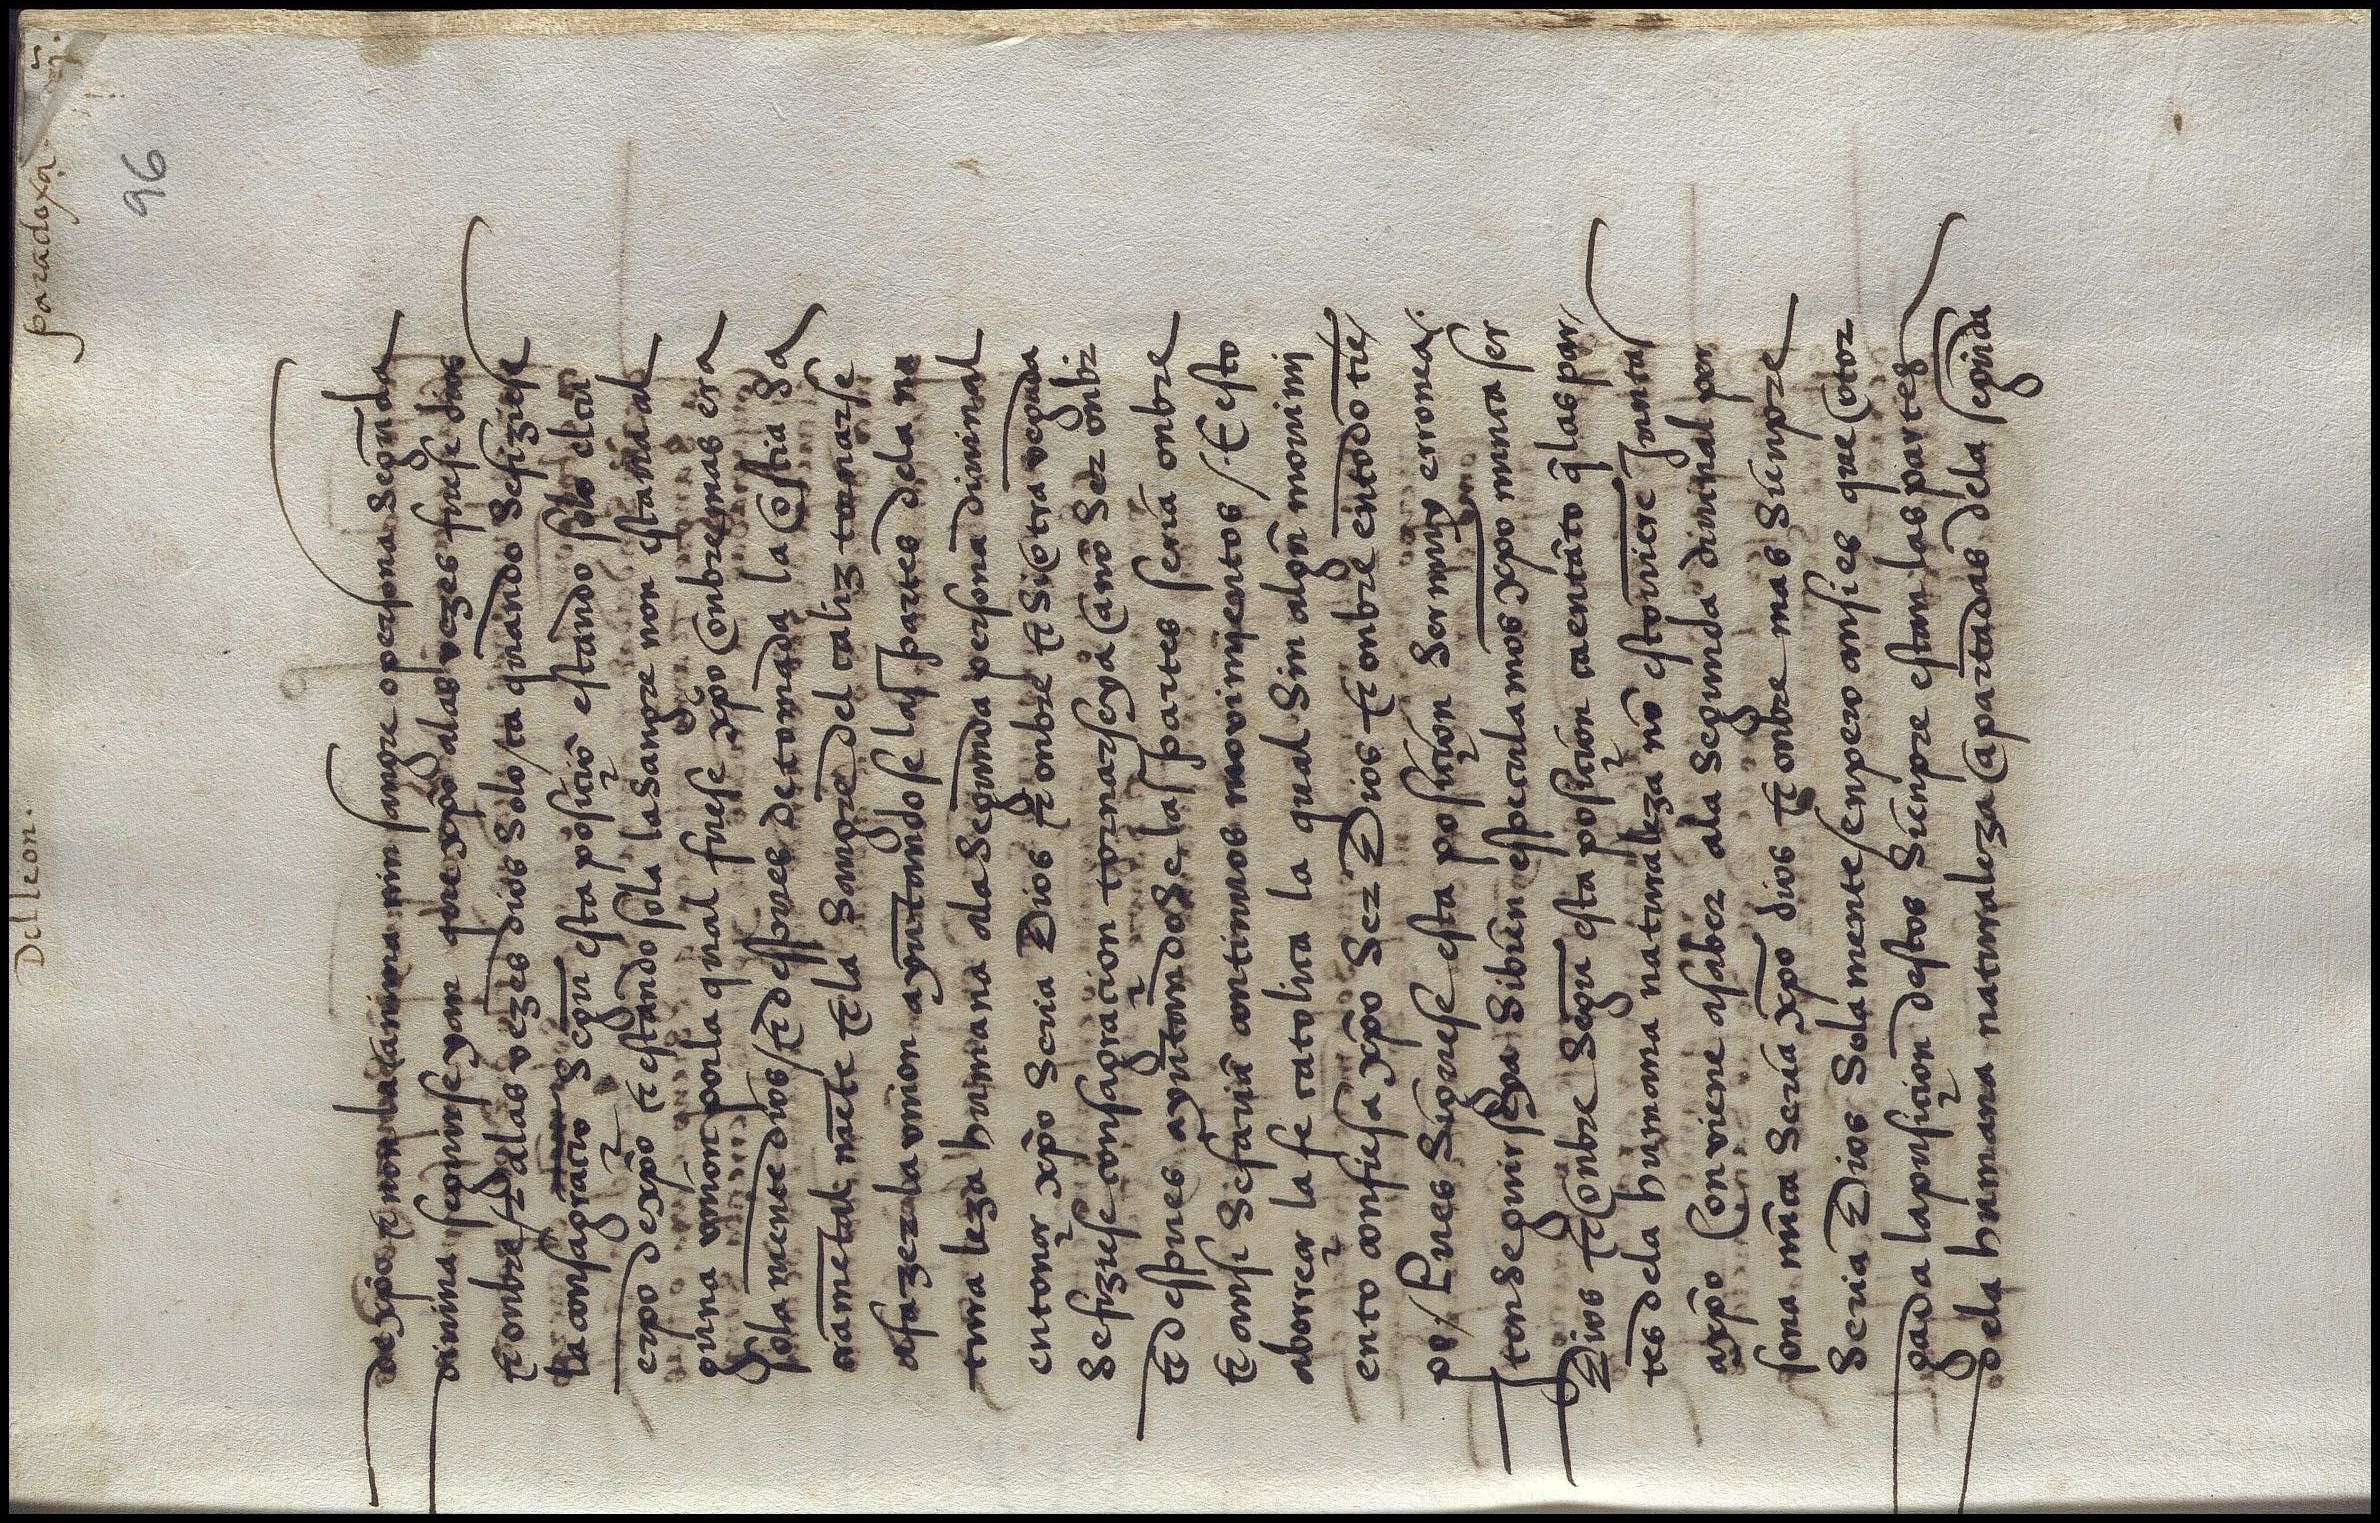 Del leon. paradoxa. 5.
96
de xp̃o & non la la anima nin sangre o persona segonda
diuina seguirse yan que xp̃o alas vezes fuese dios
& onbre / & alas vezes dios solo / ca quando se fiziese
la consagraçiõ segũ esta posiçiõ estando solo el cu
erpo de xp̃o & estando sola la sangre non esta nīnal
guna vnion por la qual fuese xp̃o onbre mas era
sola mente dios / & despues de tomada la ostia sa
cramẽtal mẽte & la sangre del caliz tornarse
a fazer la vnion ayuntando se las partes dela na
tura leza humana ala segunda persona diuinal
entonçe xp̃o seria Dios & onbre & si otra vegada
se fiziese consagraçion tornarseya a no ser onbre
& despues ayuntando se las partes seria onbre
& ansi se farian continuos mouimientos / & esto
aborreçe la fe catolica la qual sin algũ mouimi
ento confiesa xp̃o ser Dios & onbre en todo tie
po / Pues siguese esta posiçion ser muy erronea.
Iten seguirseya si bien especulamos xp̃o nunca ser
Dios & onbre segũ esta posiçion ca entãto q̃ las par
tes dela humana naturaleza nõ estouiere Iuntas
a xp̃o conuiene a saber ala segunda diuinal per
sona nũca seria xp̃o dios & onbre mas siempre
seria Dios sola mente / enpero ansi es que otor
gada la pusiçion destos sienpre estan las partes
dela humana naturaleza apartadas dela segũda